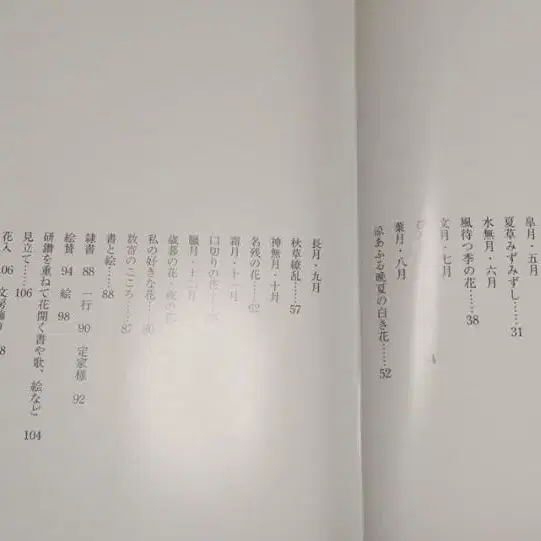 皐月・五月
夏草みずみずし……31
水無月・六月
風待つ季の花……38
文月・七月
葉月・八月
涼あふる晩夏の白き花……52
長月・九月
秋草繚乱……57
神無月・十月
名残の花……62
霜月・十一月
口切りの花……
臘月・十二月
歳暮の花・夜の花
私の好きな花……80
数寄のこころ……87
書と絵……88
隷書 88 一行 90 定家様 92
絵賛 94 絵 98
研鑽を重ねて花開く書や歌、絵など 104
見立て……106
花入 106